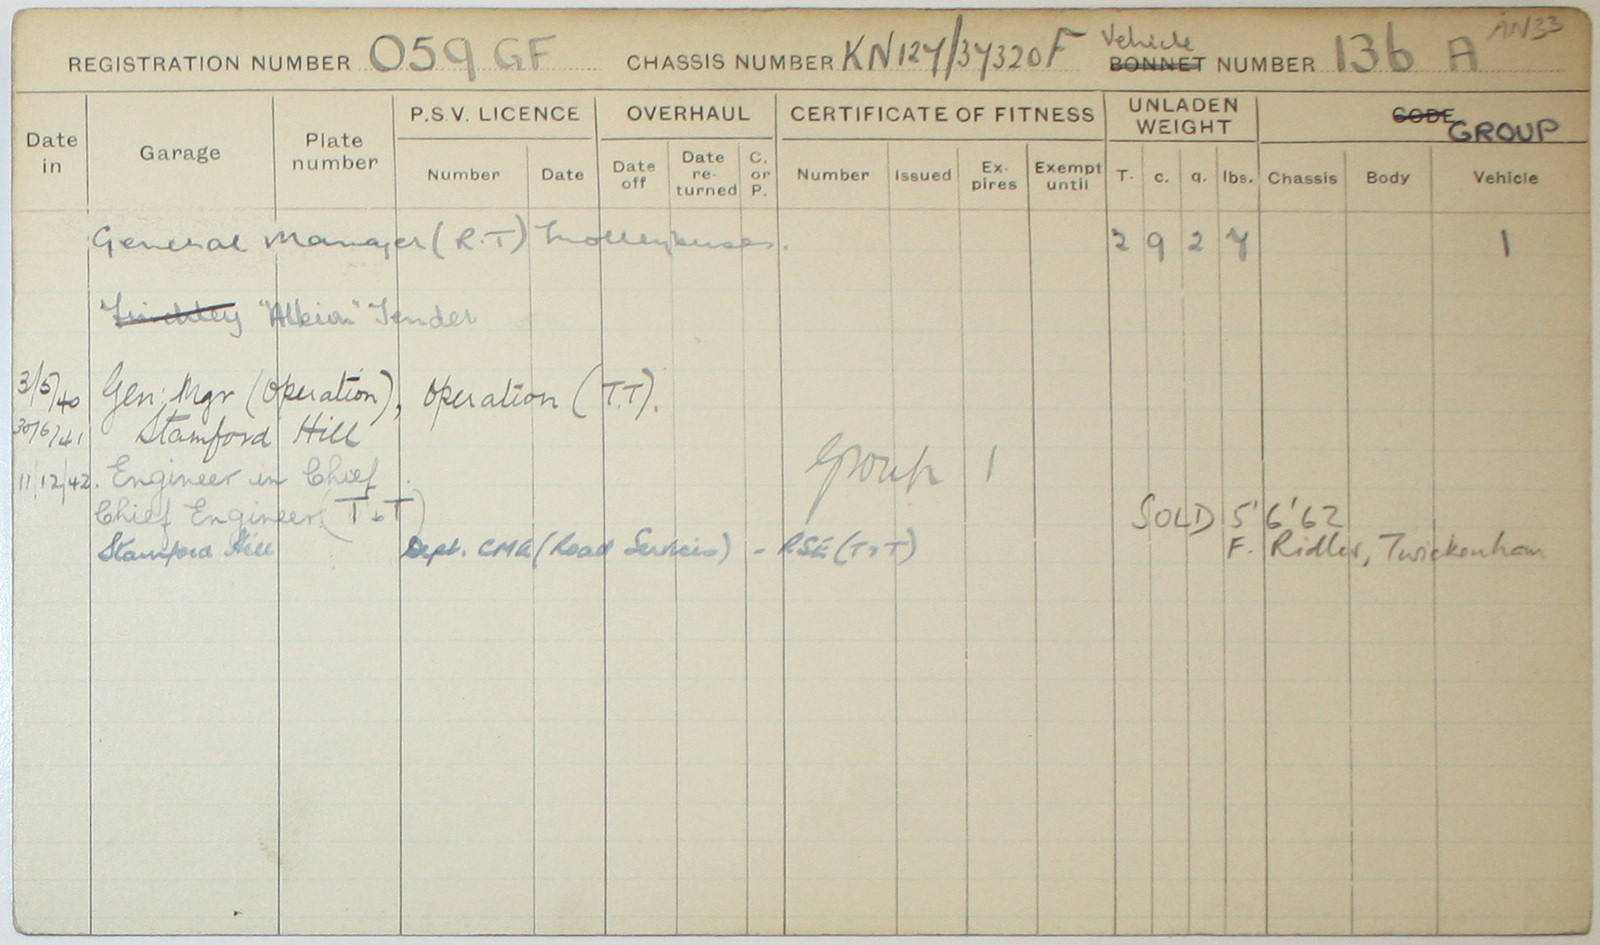 AN33
REGISTRATION NUMBER 059 GF CHASSIS NUMBER KN127/37320F Vehicle BONNET NUMBER 136 A
Date in Garage Plate number P.S.V. LICENCE OVERHAUL CERTIFICATE OF FITNESS UNLADEN WEIGHT CODE GROUP
Number Date Date off Date re-turned C. or P. Number Issued Ex-pires Exempt until T. c. q. lbs. Chassis Body Vehicle
General Manager (R.T) Trolleybuses. 2 9 2 7 1
Finchley "Albion" Tender
3/5/40 Gen: Mgr (Operation), Operation (T.T).
30/6/41 Stamford Hill
11/12/42. Engineer in Chief Group 1
Chief Engineer (T & T) SOLD 5'6'62
Stamford Hill Dept. CME (Road Services) - RSE (T & T) F. Ridler, Twickenham